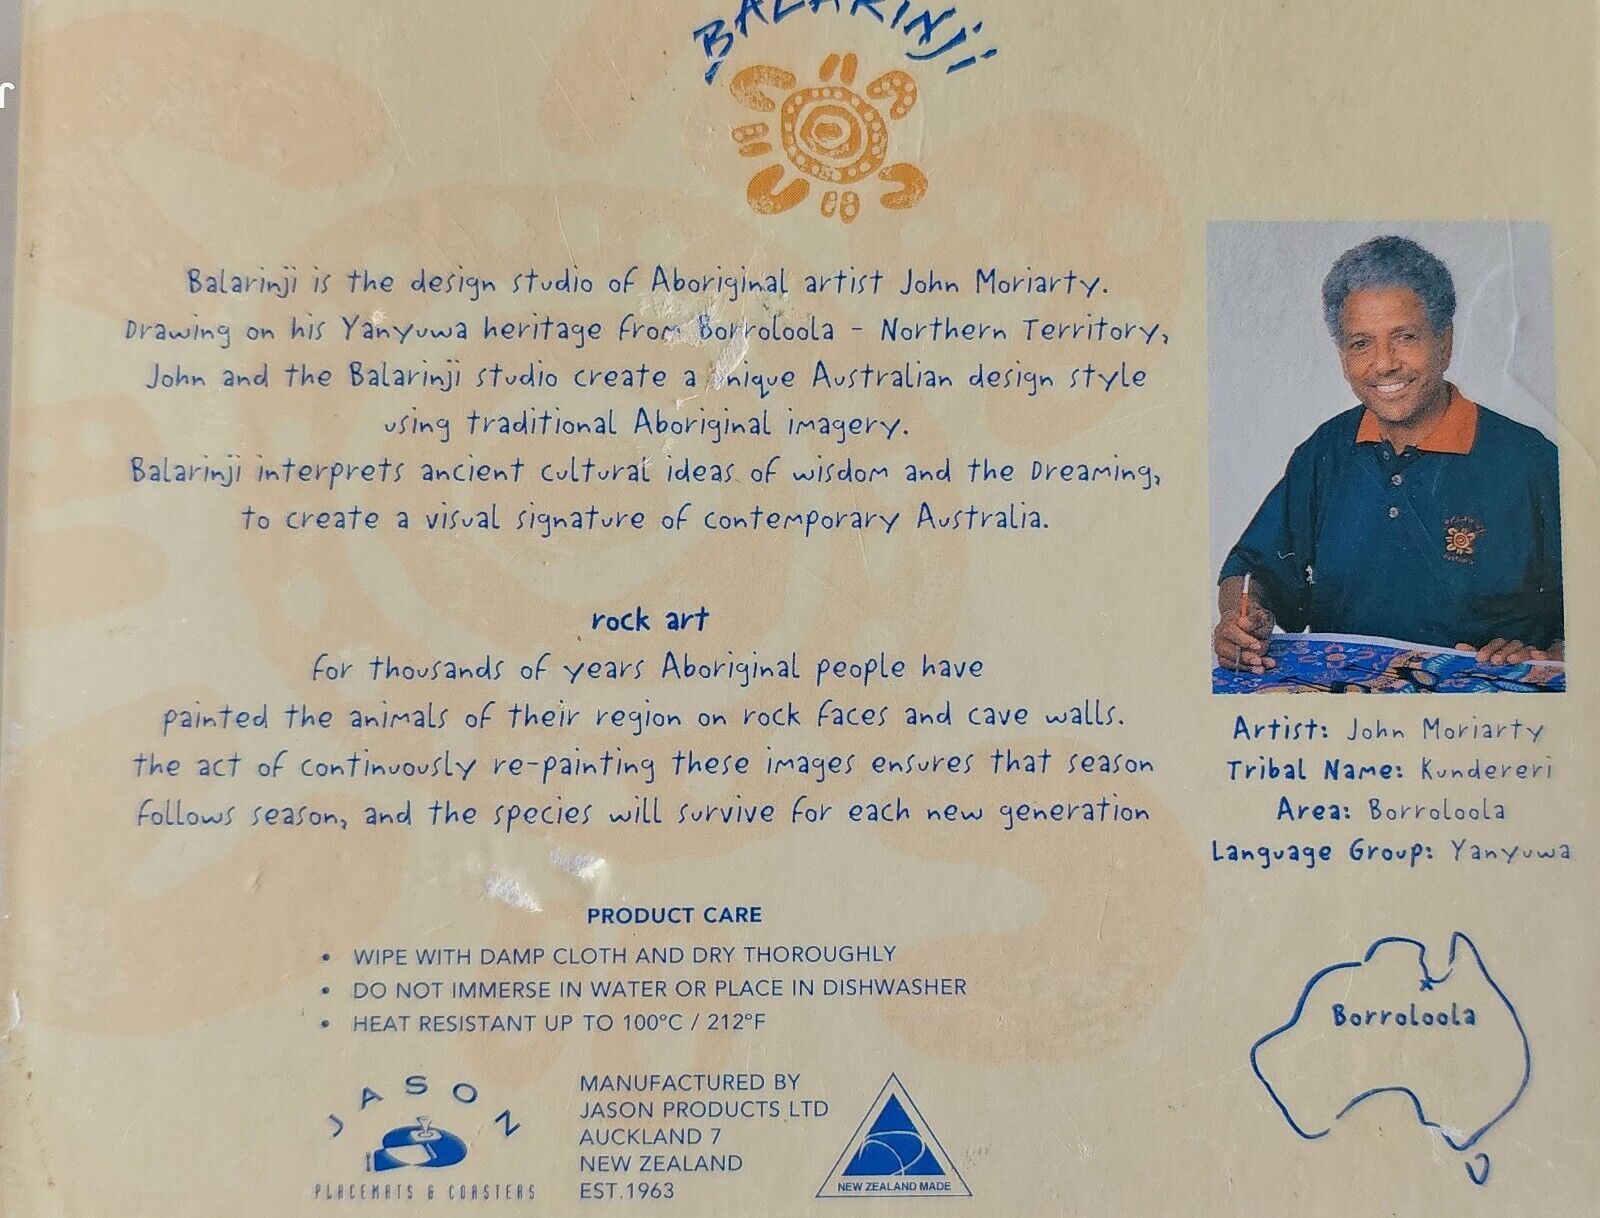 BALARINJI
Balarinji is the design studio of Aboriginal artist John Moriarty.
Drawing on his Yanyuwa heritage from Borroloola - Northern Territory,
John and the Balarinji studio create a unique Australian design style
using traditional Aboriginal imagery.
Balarinji interprets ancient cultural ideas of wisdom and the Dreaming,
to create a visual signature of contemporary Australia.
rock art
for thousands of years Aboriginal people have
painted the animals of their region on rock faces and cave walls.
the act of continuously re-painting these images ensures that season
follows season, and the species will survive for each new generation
Artist: John Moriarty
Tribal Name: Kundereri
Area: Borroloola
Language Group: Yanyuwa
PRODUCT CARE
• WIPE WITH DAMP CLOTH AND DRY THOROUGHLY
• DO NOT IMMERSE IN WATER OR PLACE IN DISHWASHER
• HEAT RESISTANT UP TO 100°C / 212°F
Borroloola
JASON
PLACEMATS & COASTERS
MANUFACTURED BY
JASON PRODUCTS LTD
AUCKLAND 7
NEW ZEALAND
EST.1963
NEW ZEALAND MADE